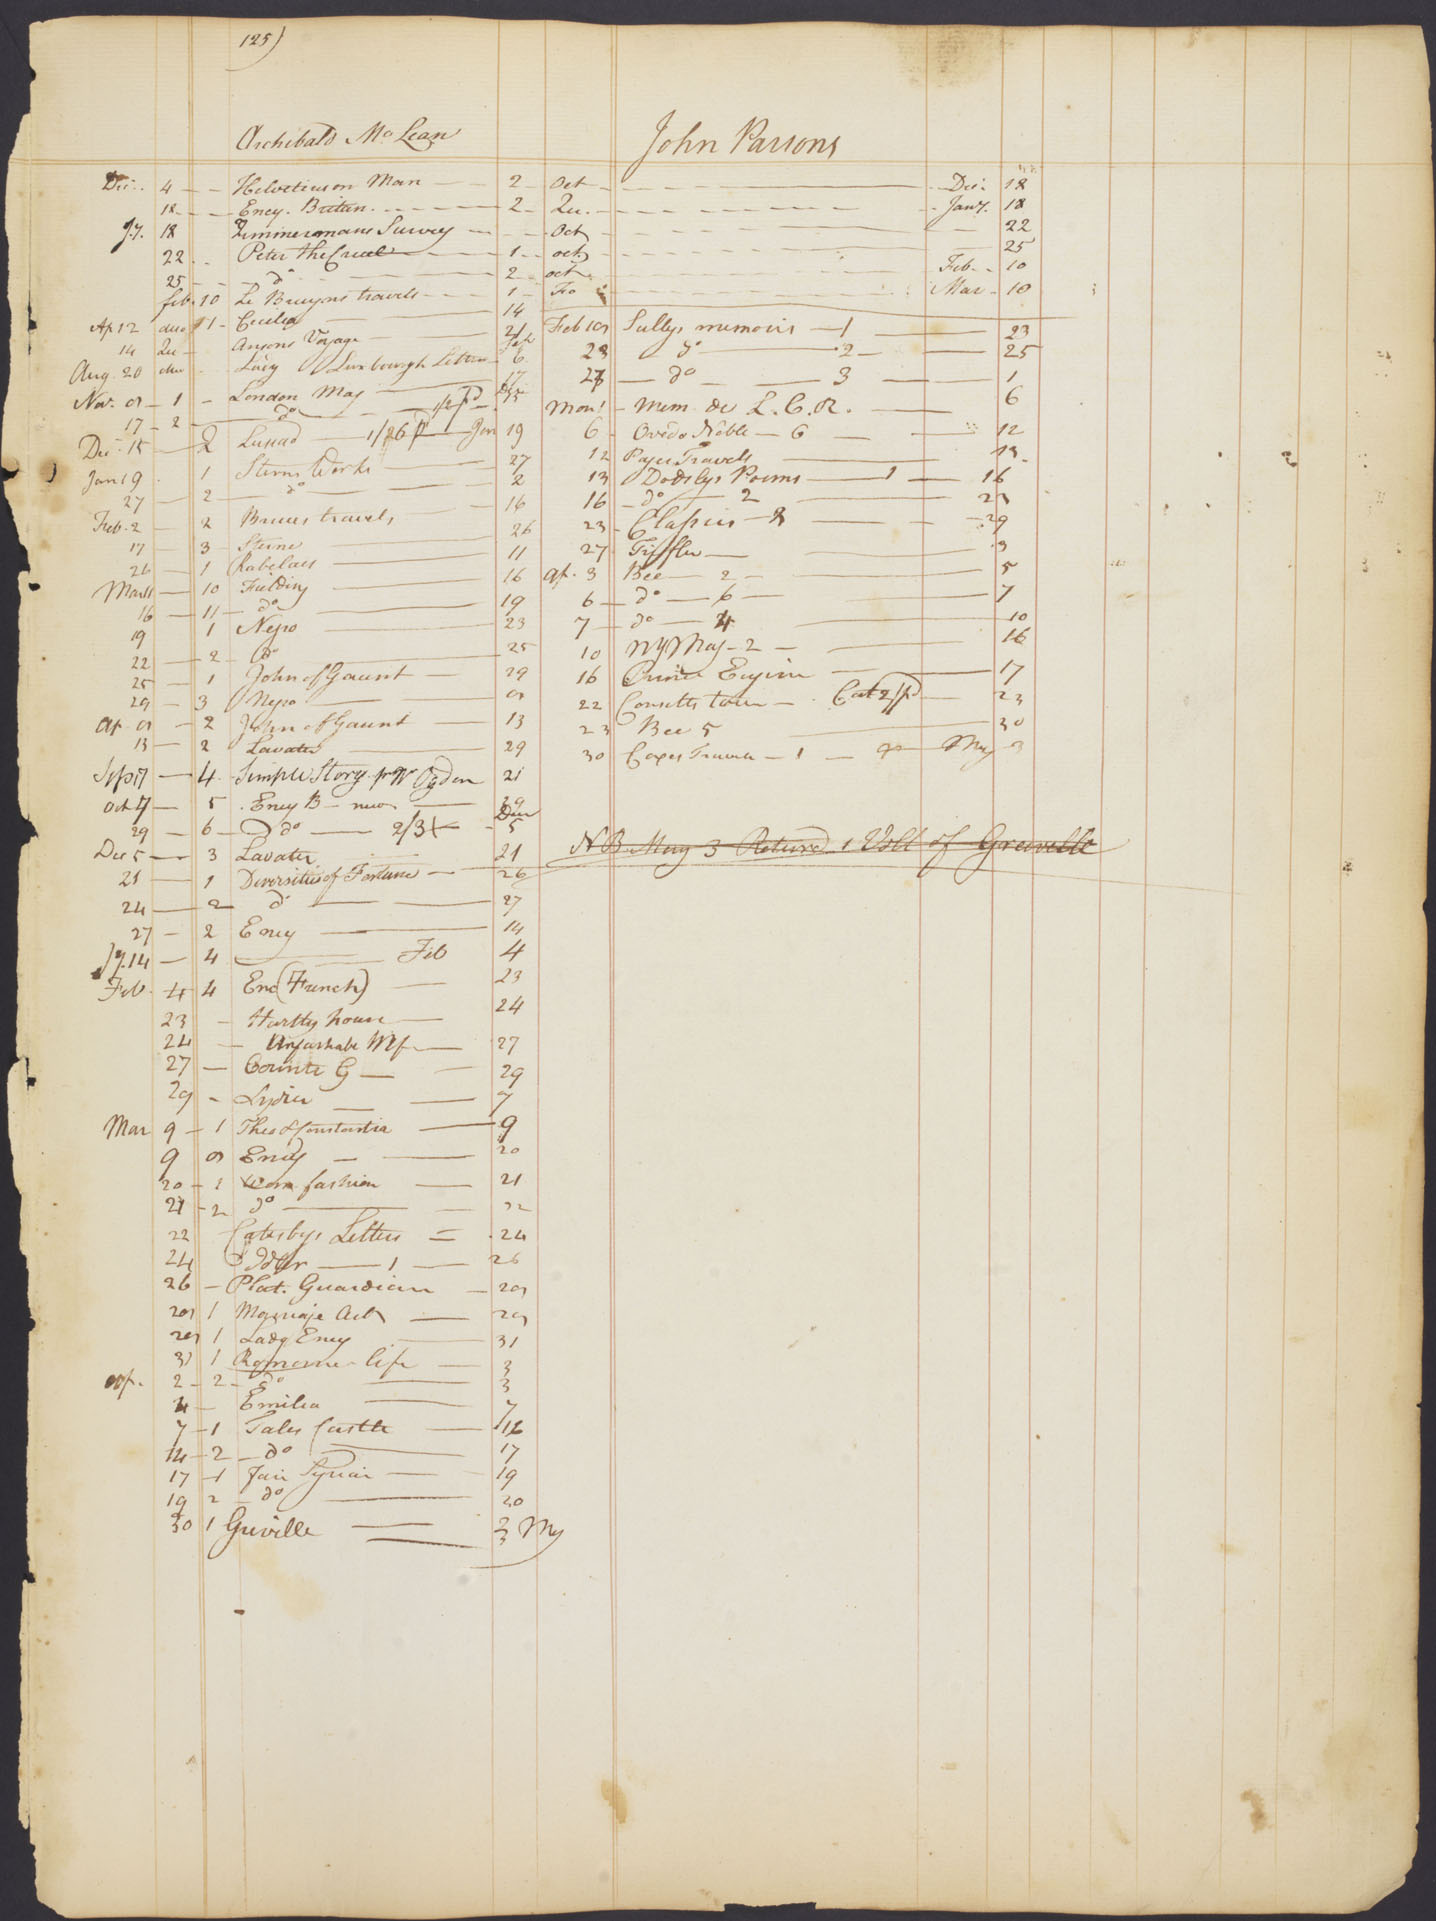 125)
Archibald McLean
Dec. 4 Helvetius on Man 2 Oct Dec. 18
18 Ency. Britan. 2 Qu. Jany. 18
Jy. 18 Zimmermans Survey Oct 22
22 Peter the Cruel 1 oct 25
25 do 2 oct Feb 10
feb. 10 Le Bruyns travels 1 Fo Mar 10
Ap 12 duo 1 Cecilia 14
14 Qu Ansons Voyage 21
Aug. 20 duo Lady Luxbourgh Letters 6
Nov. 9 1 London Mag 17
17 2 do 1/2 pd 15
Dec. 15 2 Lusiad 1/26 pd Jan 19
Jan 19 1 Sterns Works 27
27 2 do 2
Feb. 2 2 Bruces travels 16
17 3 Sterne 26
26 1 Rabelais 11
Mar 11 10 Fielding 16
16 11 do 19
19 1 Negro 23
22 2 do 25
25 1 John of Gaunt 29
29 3 Negro 9
Ap. 9 2 John of Gaunt 13
13 2 Lavater 29
Sep 17 4 Simple Story pr W Ogden 21
Oct 7 5 Ency B new 29
29 6 do 2/3 Dec 5
Dec 5 3 Lavater 21
21 1 Diversities of Fortune 26
24 2 do 27
27 2 Ency 14
Jy. 14 4 Feb 4
Feb. 4 4 Enc (French) 23
23 Hartly house 24
24 Unfashable Wife 27
27 Counts G 29
29 Lydia 7
Mar 9 1 Theo & Constantia 9
9 9 Ency 20
20 1 Wom fashion 21
21 2 do 22
22 Catesbys Letters 24
24 Idler 1 26
26 Plat. Guardian 29
29 1 Marriage Act 29
29 1 Lady Emy 31
31 1 Romorne life 3
Ap. 2 2 do 3
4 Emilia 7
7 1 Tales Castle 16
14 2 do 17
17 1 Fair Syrian 19
19 2 do 20
30 1 Greville 3 My
3
John Parsons
Feb 19 Sullys memoirs 1 23
23 do 2 25
27 do 3 1
Mon 1 Mem de L. C. R. 6
6 Ovedo Noble 6 12
12 Pages Travels 13
13 Dodslys Poems 1 16
16 do 2 23
23 Classics 2 29
27 Triffler 3
Ap. 3 Bee 2 5
6 do 6 7
7 do 4 10
10 NY Mag 2 16
16 Prince Eugine 17
22 Consetts tour Cat 2/ pd 23
23 Bee 5 30
30 Coxes Travels 1 May 3
NB May 3 Returd 1 Voll of Greville